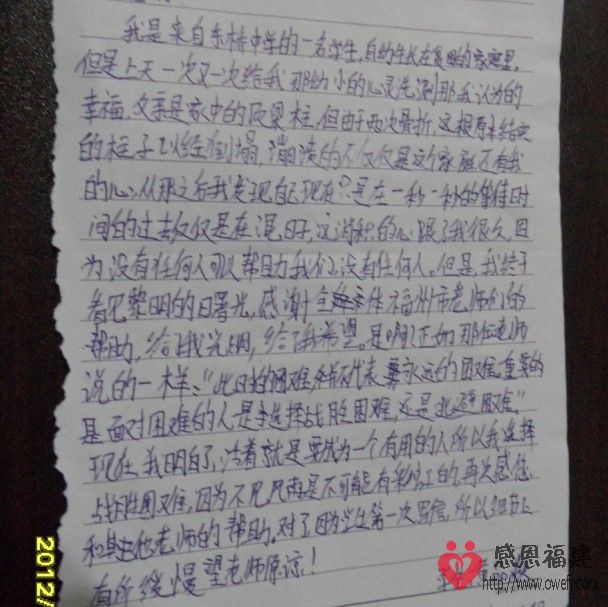 我是来自东桥中学的一名学生,自幼生长在贫困的家庭里,
但是上天一次又一次给我那幼小的心灵洗涮那我认为的
幸福。父亲是家中的顶梁柱,但由于两次骨折,这根原本结实
的柱子以经倒塌,崩溃的不仅仅是这个家庭还有我
的心,从那之后我发现自己现在只是在一秒一秒的等待时
间的过去仅仅是在混日子,这消积的心跟了我很久,因
为没有任何人可以帮助我们,没有任何人。但是,我终于
看见黎明的曙光,感谢全体福州市老师们的
帮助,给了我光明,给了我希望。是啊!正如那位老师
说的一样:"此时的困难,并不代表要永远的困难,重要的
是面对困难的人是选择战胜困难,还是逃避困难。"
现在,我明白了,活着就是要成为一个有用的人所以我选择
战胜困难,因为不见风雨是不可能有彩虹的,再次感信
和其他老师的帮助。对了,因为学生第一次写信,所以细节上
有所缓慢望老师原谅!
2012/
感恩福建
http://www.owefj.com